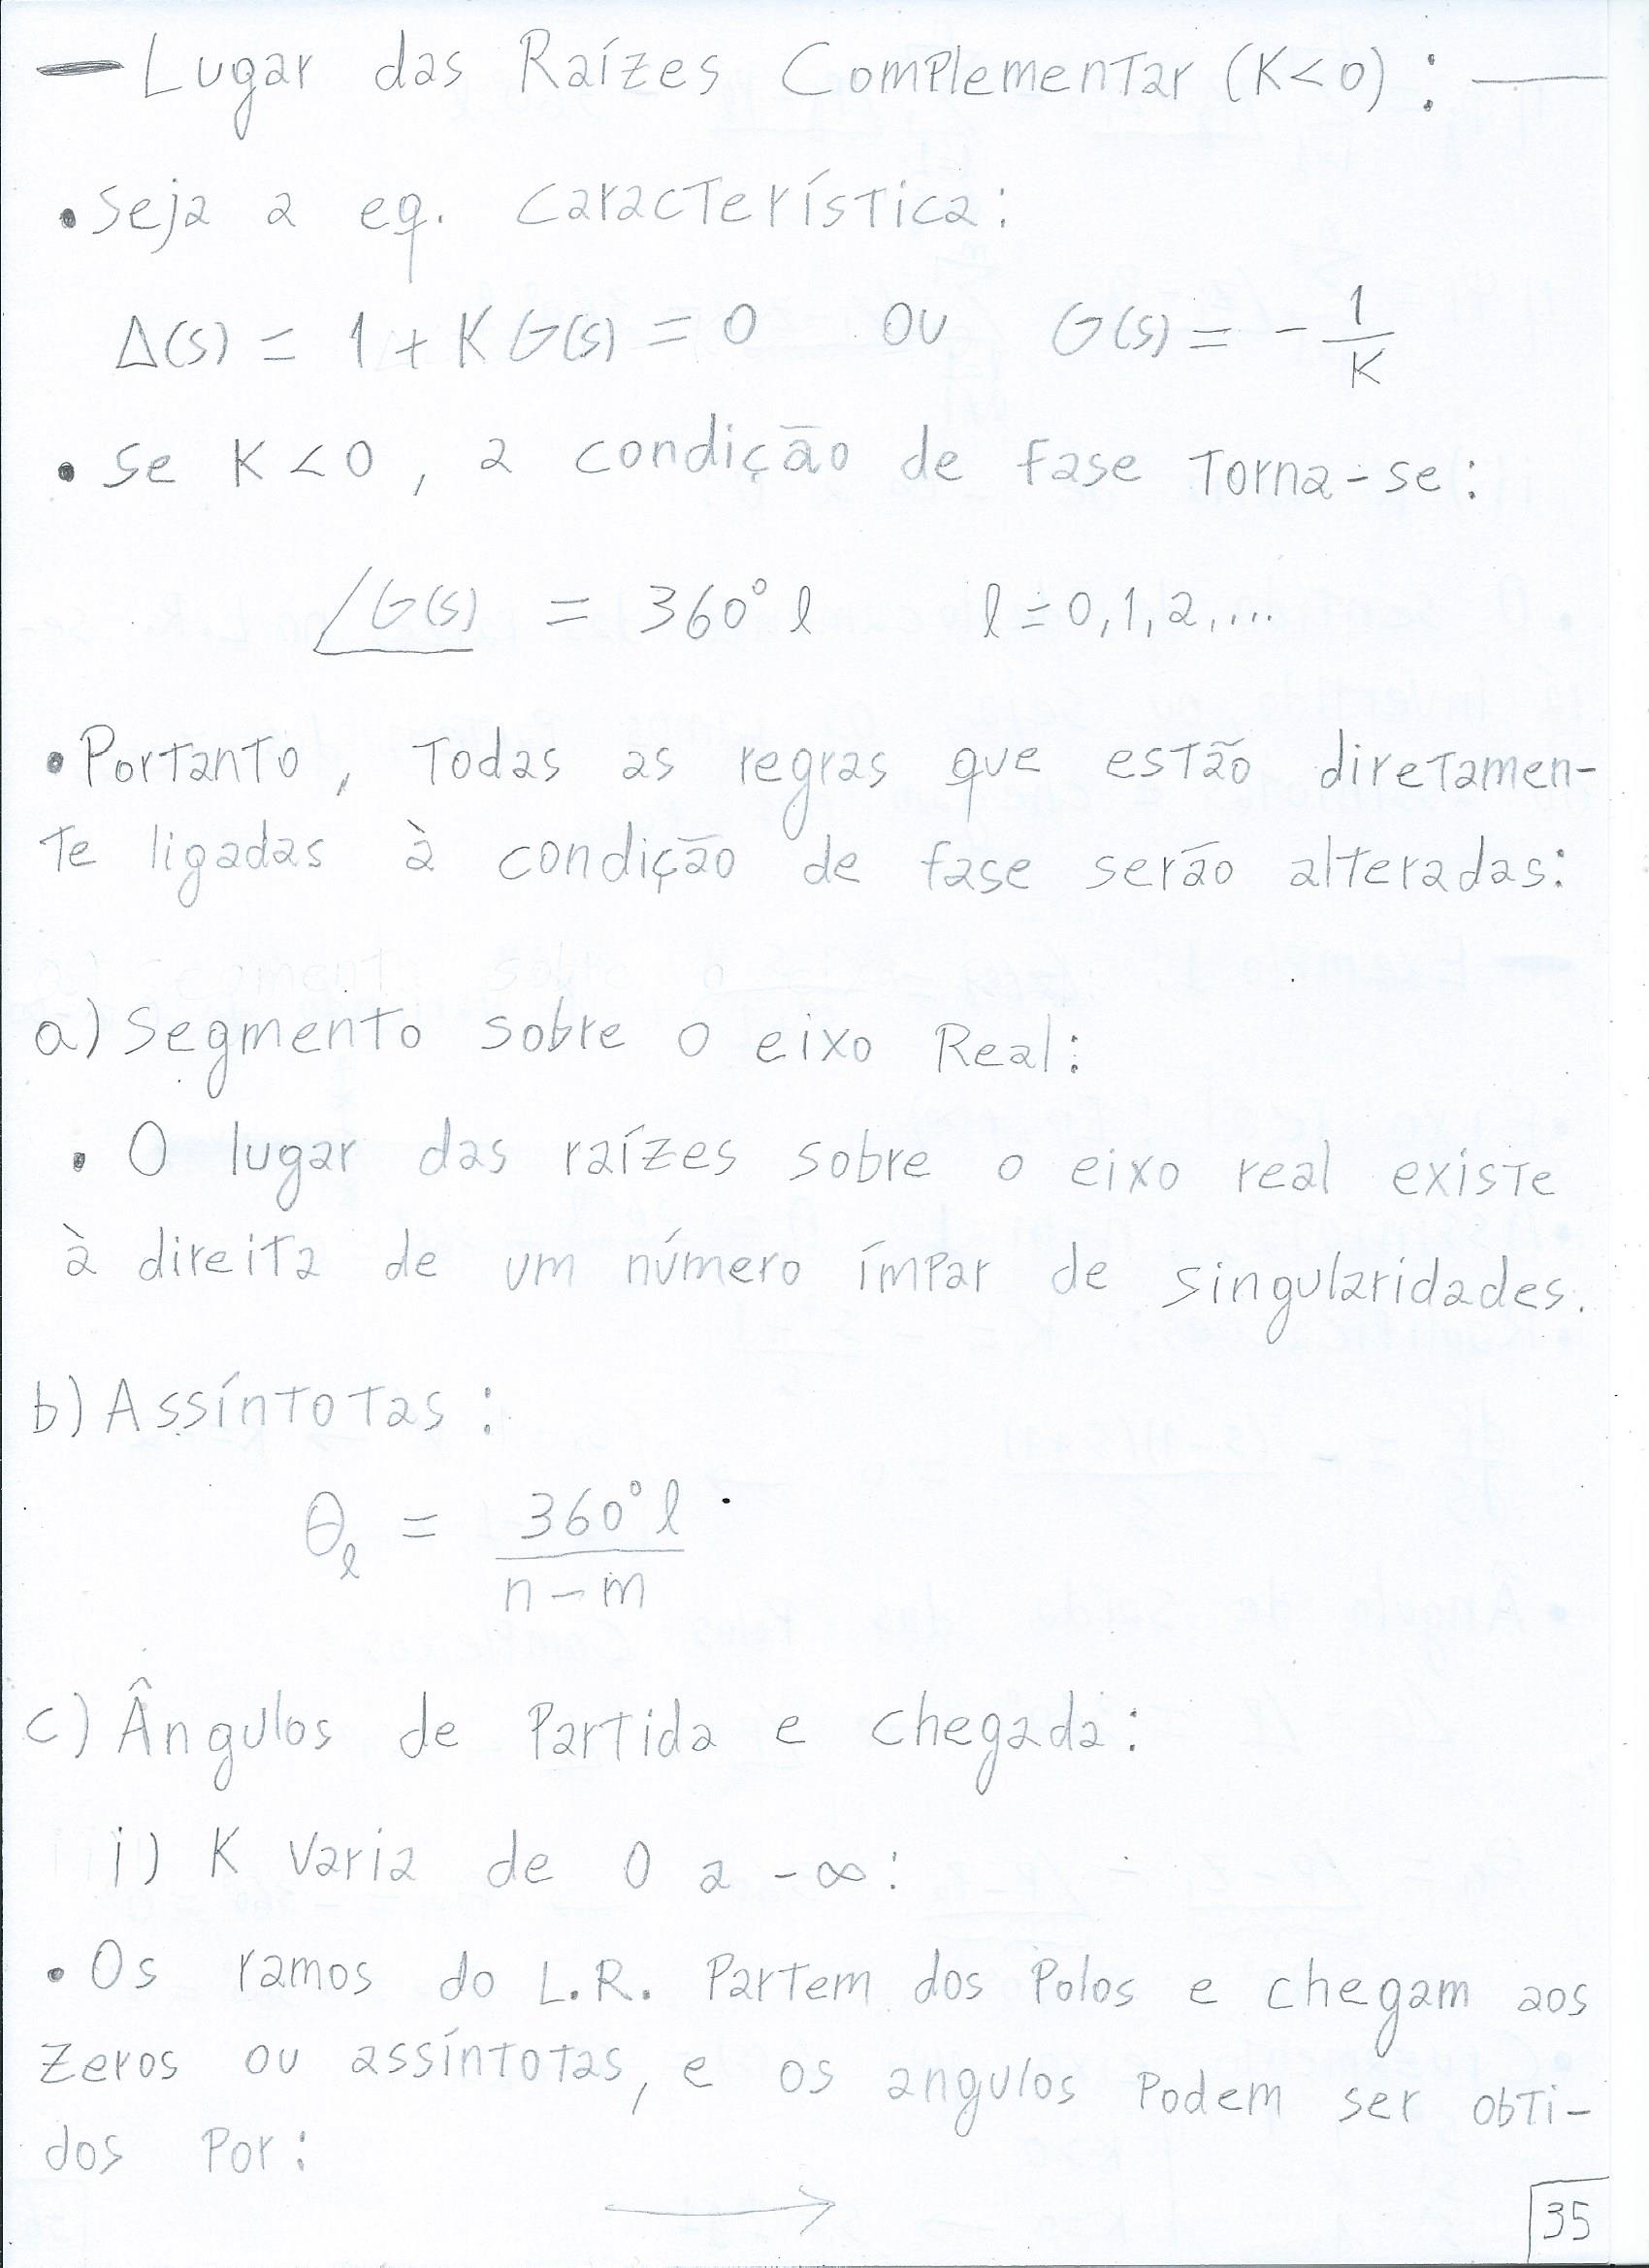 — Lugar das Raízes Complementar (K<0) : —
• Seja a eq. característica:
Δ(s) = 1 + K G(s) = 0 ou G(s) = - 1/K
• Se K<0, a condição de fase torna-se:
∠G(s) = 360° l l = 0,1,2,...
• Portanto, todas as regras que estão diretamen-
te ligadas à condição de fase serão alteradas:
a) Segmento sobre o eixo Real:
• O lugar das raízes sobre o eixo real existe
à direita de um número ímpar de singularidades.
b) Assíntotas :
θ_l = 360° l / n - m
c) Ângulos de Partida e chegada:
i) K varia de 0 a -∞:
• Os ramos do L.R. Partem dos Polos e chegam aos
zeros ou assíntotas, e os angulos Podem ser obti-
dos Por:
→
35